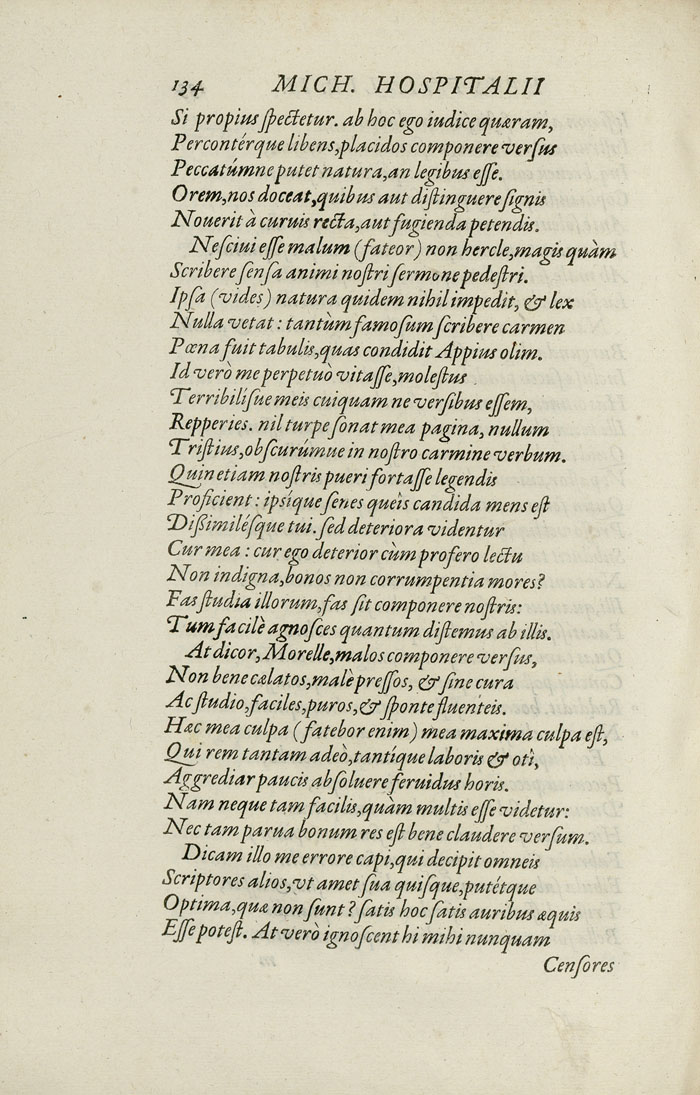 134 MICH. HOSPITALII
Si propius ſpectetur. ab hoc ego iudice quæram,
Percontérque libens, placidos componere verſus
Peccatúmne putet natura, an legibus eſſe.
Orem, nos doceat, quibus aut diſtinguere ſignis
Nouerit à curuis recta, aut fugienda petendis.
Neſciui eſſe malum (fateor) non hercle, magis quàm
Scribere ſenſa animi noſtri ſermone pedeſtri.
Ipſa (vides) natura quidem nihil impedit, & lex
Nulla vetat : tantùm famoſum ſcribere carmen
Pœna fuit tabulis, quas condidit Appius olim.
Id verò me perpetuò vitaſſe, moleſtus
Terribiliſue meis cuiquam ne verſibus eſſem,
Repperies. nil turpe ſonat mea pagina, nullum
Triſtius, obſcurúmue in noſtro carmine verbum.
Quin etiam noſtris pueri fortaſſe legendis
Proficient : ipſíque ſenes queîs candida mens eſt
Dißimiléſque tui. ſed deteriora videntur
Cur mea : cur ego deterior cùm profero lectu
Non indigna, bonos non corrumpentia mores?
Fas ſtudia illorum, fas ſit componere noſtris:
Tum facilè agnoſces quantum diſtemus ab illis.
At dicor, Morelle, malos componere verſus,
Non bene cælatos, malè preſſos, & ſine cura
Ac ſtudio, faciles, puros, & ſponte fluenteis.
Hæc mea culpa (fatebor enim) mea maxima culpa eſt,
Qui rem tantam adeò, tantíque laboris & otî,
Aggrediar paucis abſoluere feruidus horis.
Nam neque tam facilis, quàm multis eſſe videtur:
Nec tam parua bonum res eſt bene claudere verſum.
Dicam illo me errore capi, qui decipit omneis
Scriptores alios, vt amet ſua quiſque, putétque
Optima, quæ non ſunt? ſatis hoc ſatis auribus æquis
Eſſe poteſt. At verò ignoſcent hi mihi nunquam
Cenſores